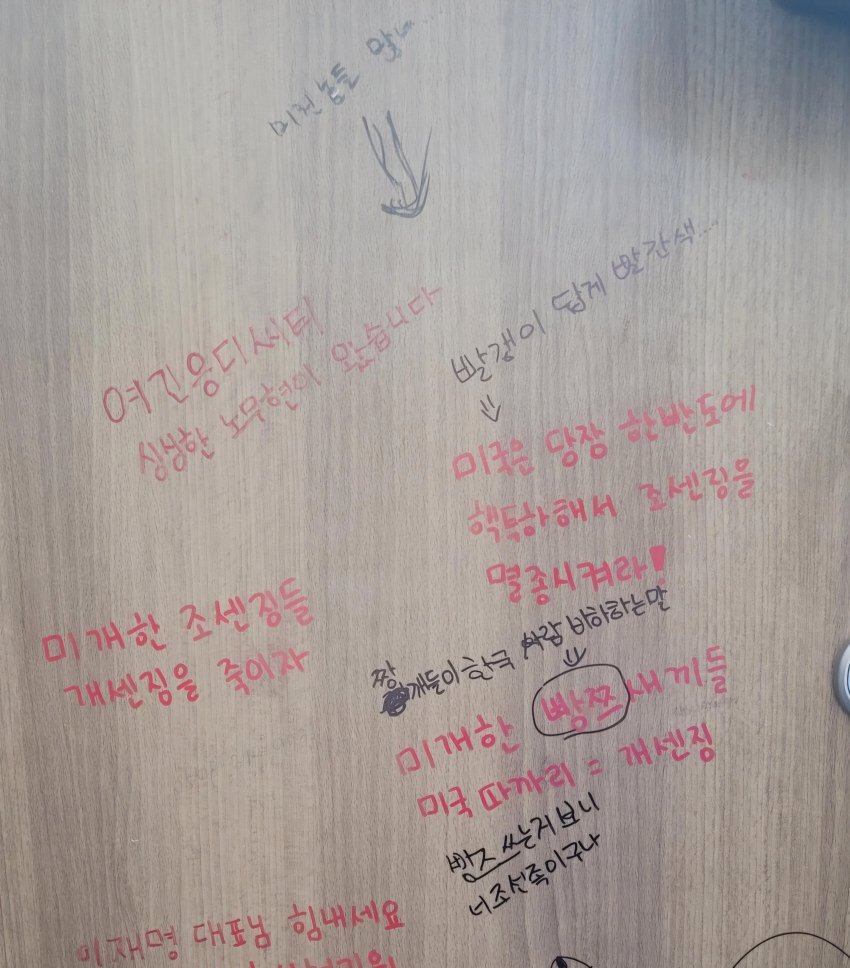 미친 놈들 맞네...
여긴응디씨티
싱싱한 노무현이 왔습니다
빨갱이 답게 빨간색...
미국은 당장 한반도에
핵투하해서 조센징을
멸종시켜라!
미개한 조센징들
개센징을 죽이자
짱깨들이 한국 사람 비하하는말
미개한 빵쯔 새끼들
미국 따까리 = 개센징
빵즈 쓰는거 보니
너조선족이구나
이재명 대표님 힘내세요